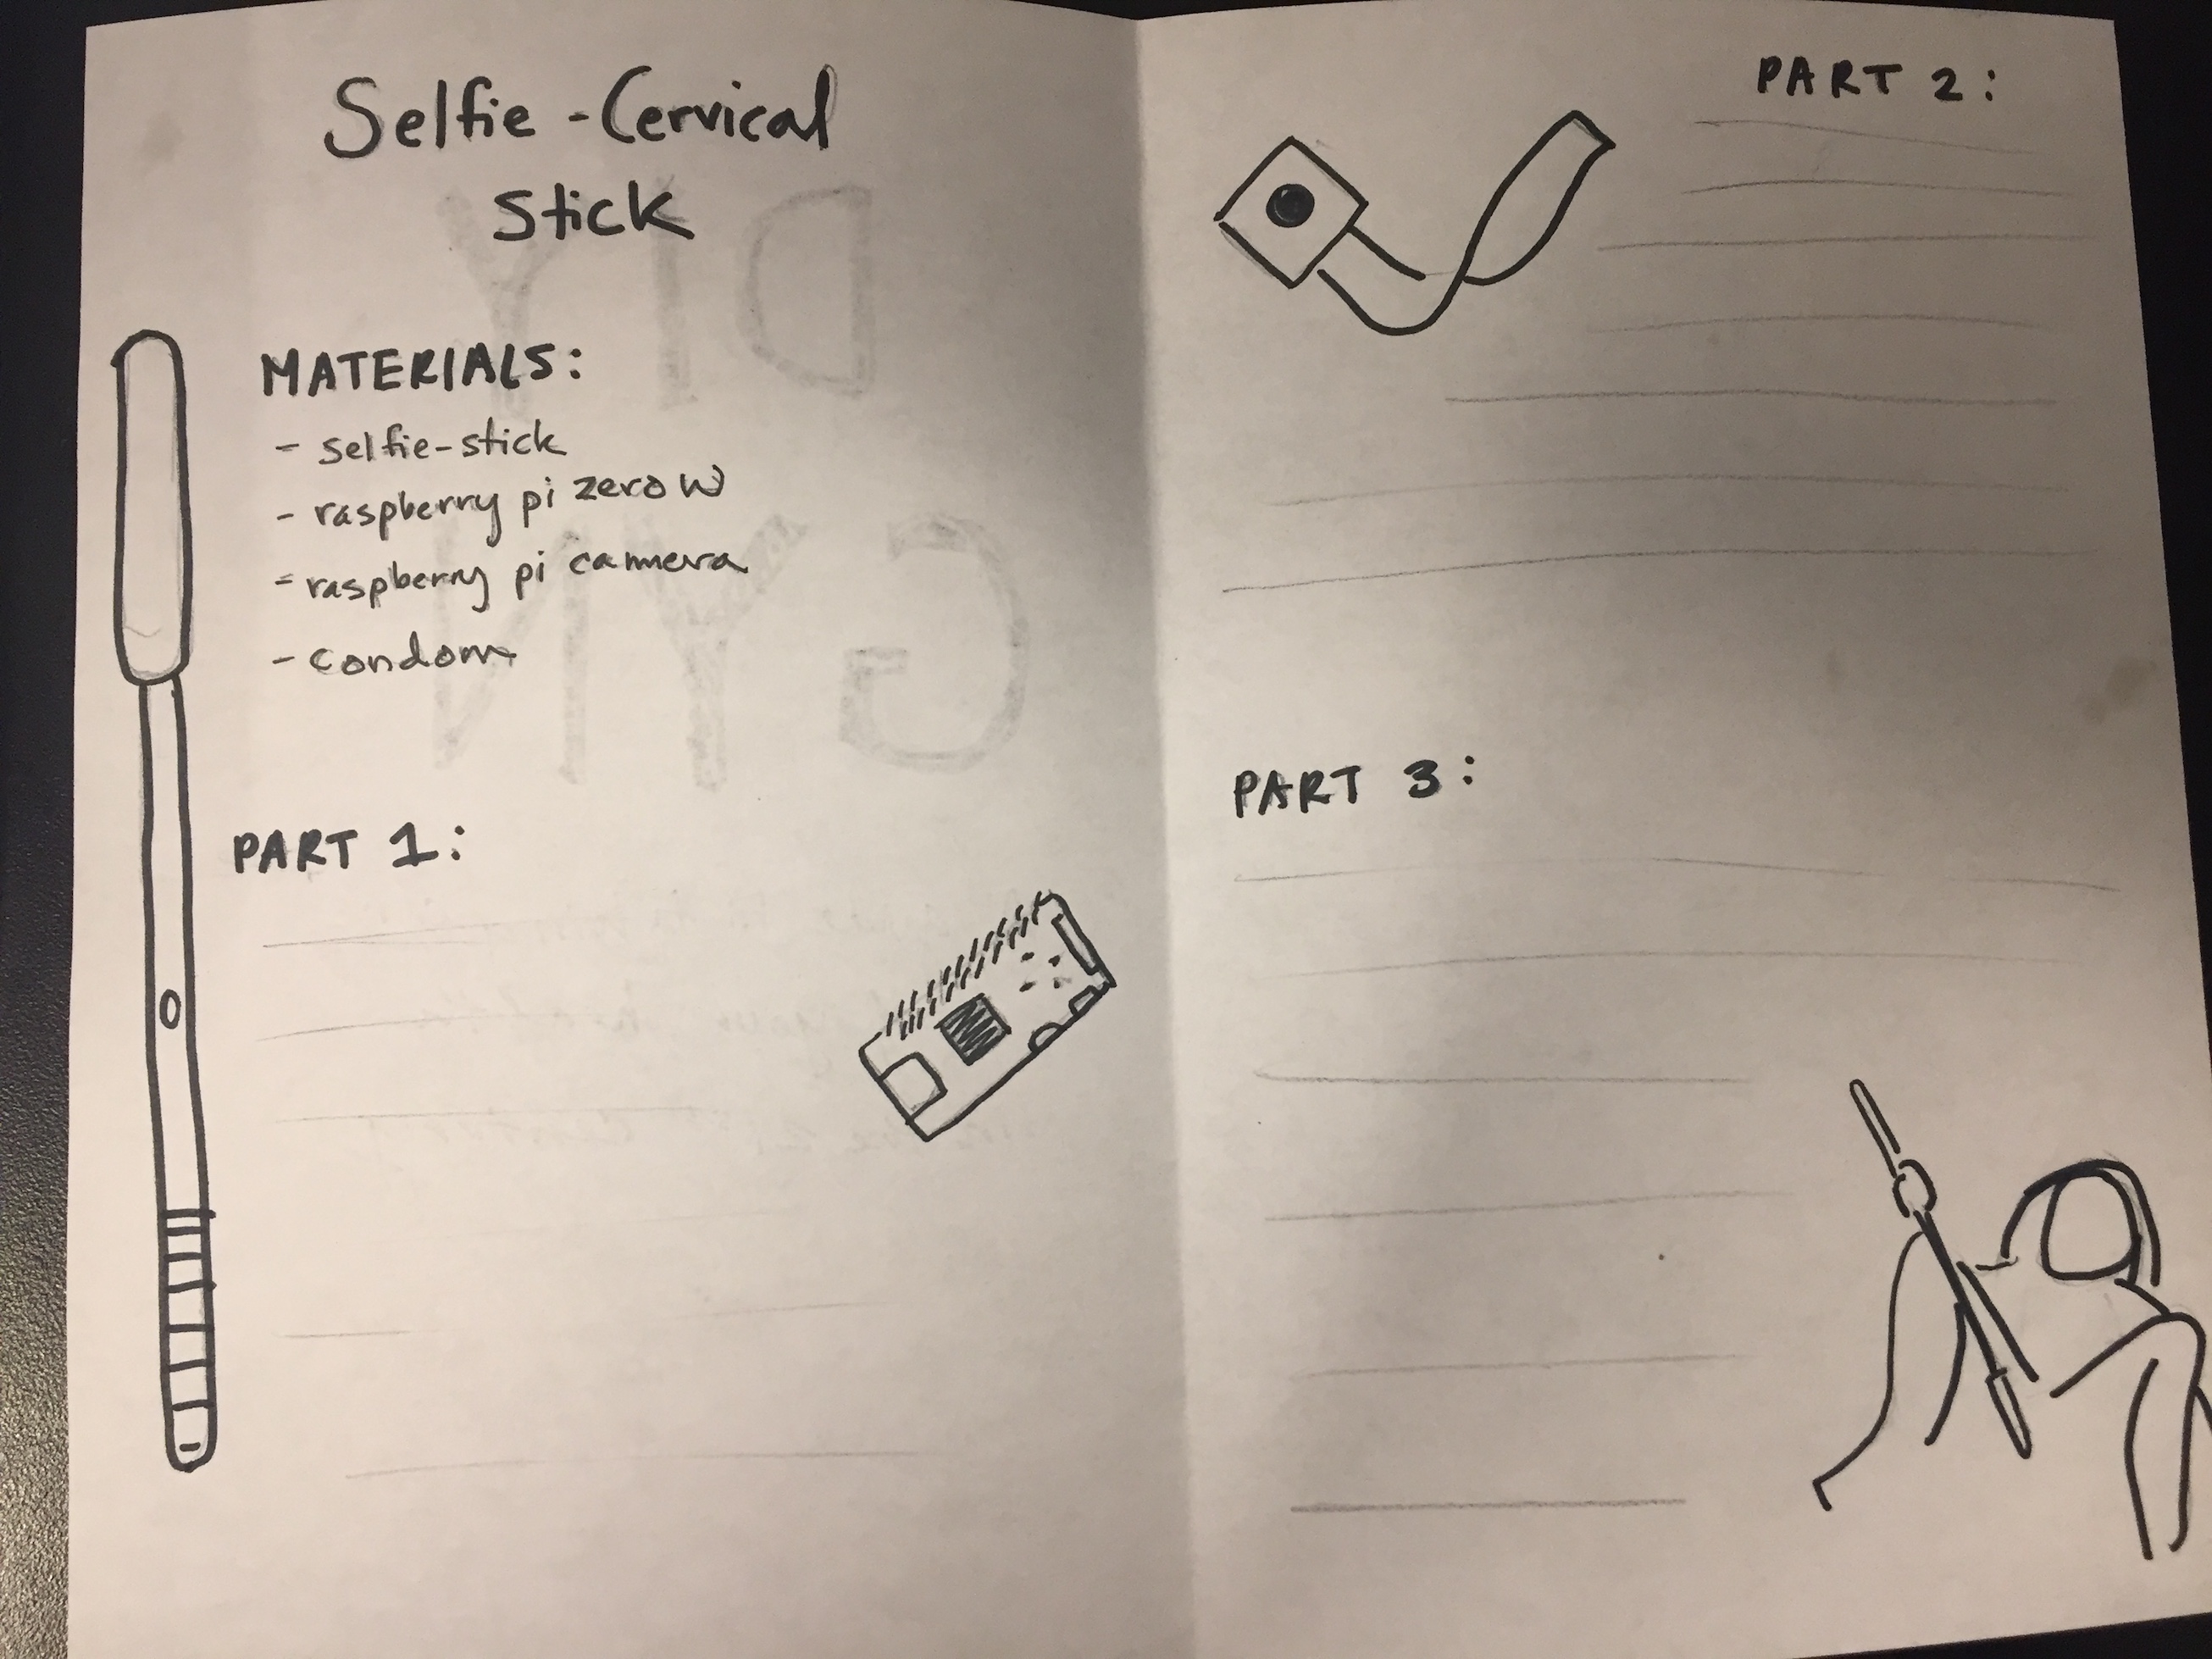 Selfie-Cervical
Stick
MATERIALS:
- selfie-stick
- raspberry pi zero W
- raspberry pi camera
- condom
PART 1:
PART 2:
PART 3:
DIY
GYN